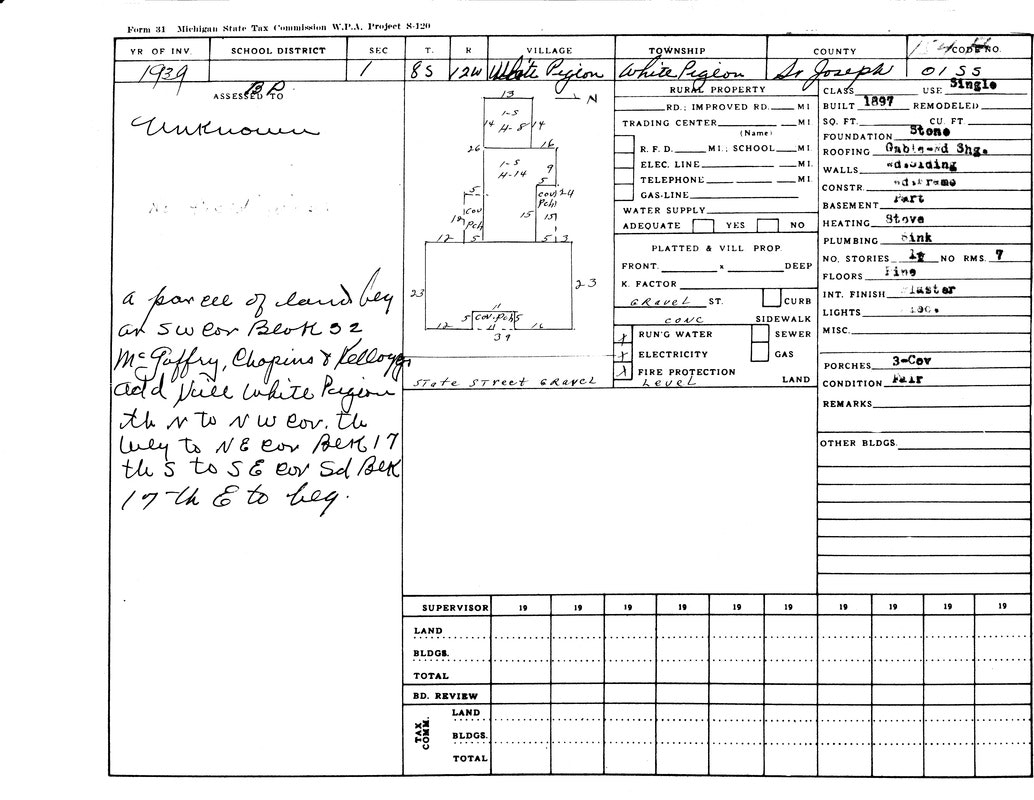 Form 31 Michigan State Tax Commission W.P.A. Project S-120
YR OF INV. SCHOOL DISTRICT SEC T. R VILLAGE TOWNSHIP COUNTY CODE NO.
1939 1 8S 12W White Pigeon White Pigeon St Joseph 01 55
ASSESSED TO
Unknown
a parcel of land beg
at SW cor Block 32
McGaffry, Chapins & Kellogg
add Vill White Pigeon
th N to NW cor. th
Wly to NE cor Blk 17
th S to SE cor Sd Blk
17 th E to beg.
13
N
1-S
14 H-8 14
26 16
1-S
H-14
9
5
5
Cov Pch
24
Cov Pch
15 15
12 5 5 3
23 23
11
5 Cov-Pch 5
12 16
39
State Street Gravel
RURAL PROPERTY
RD.; IMPROVED RD. MI
TRADING CENTER MI.
(Name)
R. F. D. MI.; SCHOOL MI.
ELEC. LINE MI.
TELEPHONE MI.
GAS-LINE
WATER SUPPLY
ADEQUATE YES NO
PLATTED & VILL PROP.
FRONT. x DEEP
K. FACTOR
Gravel ST. CURB
Conc SIDEWALK
x RUN'G WATER SEWER
x ELECTRICITY GAS
x FIRE PROTECTION
Level LAND
CLASS USE Single
BUILT 1897 REMODELED
SQ. FT. CU. FT.
FOUNDATION Stone
ROOFING Gable-wd Shg.
WALLS wd.siding
CONSTR. wd.frame
BASEMENT Part
HEATING Stove
PLUMBING Sink
NO. STORIES NO RMS. 7
FLOORS Pine
INT. FINISH Plaster
LIGHTS
MISC.
PORCHES 3-Cov
CONDITION Fair
REMARKS
OTHER BLDGS.
SUPERVISOR 19 19 19 19 19 19 19 19 19 19
LAND
BLDGS.
TOTAL
BD. REVIEW
TAX COMM.
LAND
BLDGS.
TOTAL